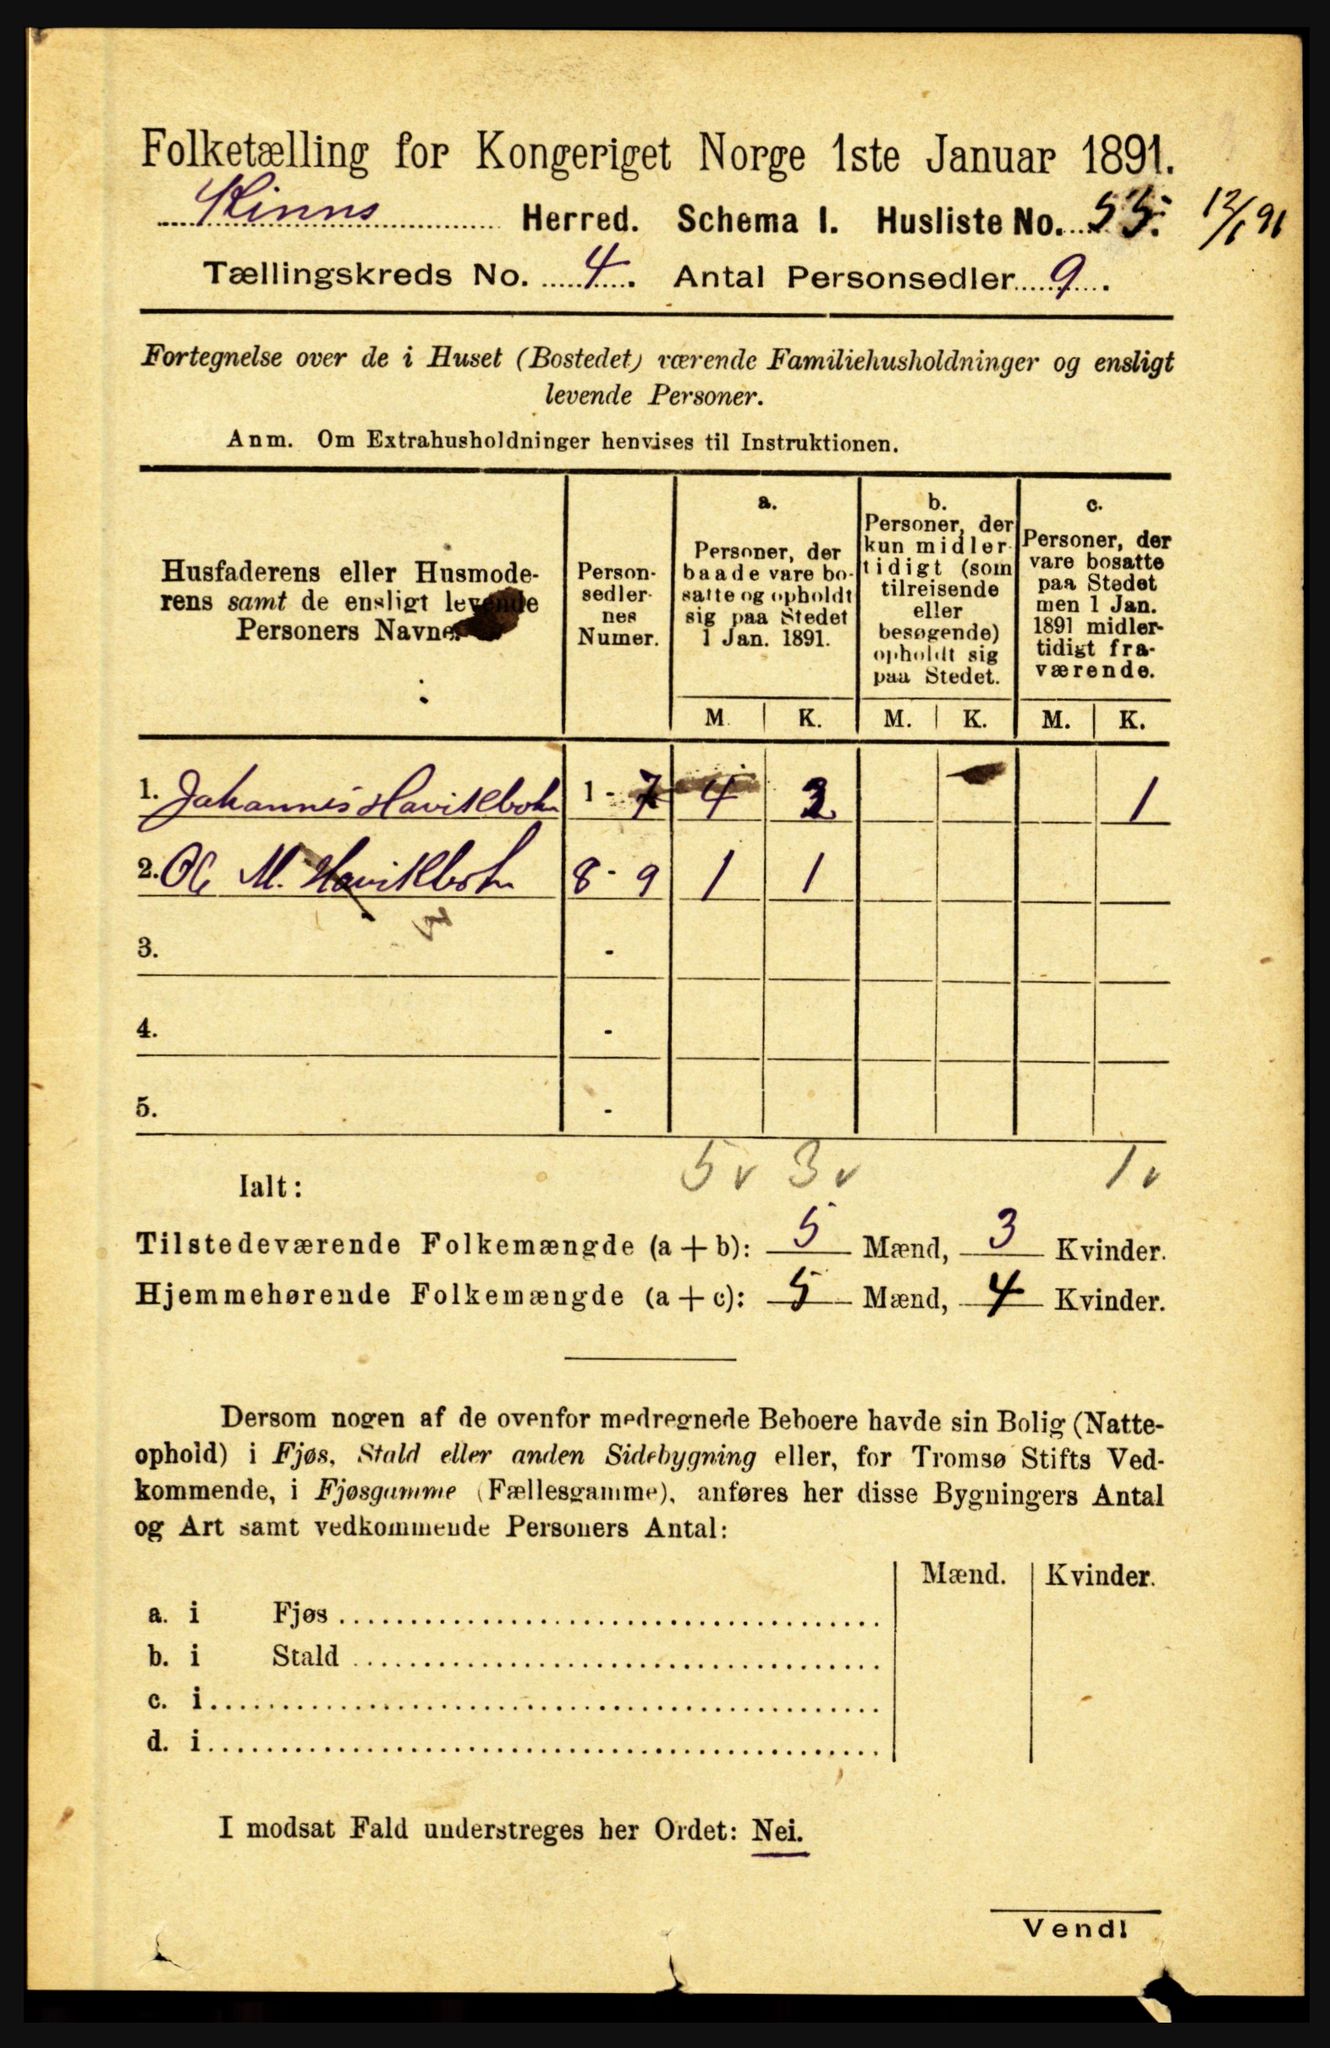 Folketælling for Kongeriget Norge 1ste Januar 1891.
Kinns Herred. Schema I. Husliste No. 55. 12/1 91
Tællingskreds No. 4. Antal Personsedler 9.
Fortegnelse over de i Huset (Bostedet) værende Familiehusholdninger og ensligt
levende Personer.
Anm. Om Extrahusholdninger henvises til Instruktionen.
Husfaderens eller Husmode-
rens samt de ensligt levende
Personers Navne
Person-
sedler-
nes
Numer.
a.
Personer, der
baade vare bo-
satte og opholdt
sig paa Stedet
1 Jan. 1891.
b.
Personer, der
kun midler-
tidigt (som
tilreisende
eller
besøgende)
opholdt sig
paa Stedet.
c.
Personer, der
vare bosatte
paa Stedet
men 1 Jan.
1891 midler-
tidigt fra-
værende.
M. K. M. K. M. K.
1. Johannes Havikboln 1 - 7 4 2 1
2. Ol M. Havikboln 8 - 9 1 1
3. -
4. -
5. -
5 v 3 v 1 v
Ialt:
Tilstedeværende Folkemængde (a + b): 5 Mænd, 3 Kvinder.
Hjemmehørende Folkemængde (a + c): 5 Mænd, 4 Kvinder.
Dersom nogen af de ovenfor medregnede Beboere havde sin Bolig (Natte-
ophold) i Fjøs, Stald eller anden Sidebygning eller, for Tromsø Stifts Ved-
kommende, i Fjøsgamme (Fællesgamme), anføres her disse Bygningers Antal
og Art samt vedkommende Personers Antal:
Mænd. Kvinder.
a. i Fjøs
b. i Stald
c. i
d. i
I modsat Fald understreges her Ordet: Nei.
Vend!